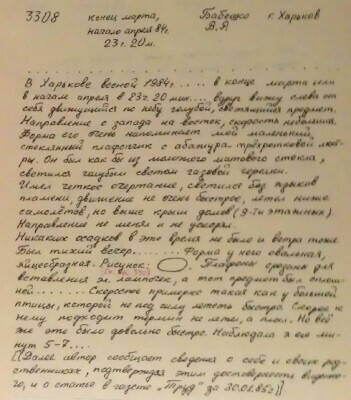 3308
конец марта,
начало апреля 84г.
23 г. 20 м.
Бабешко г. Харьков
В.Я
В Харькове весной 1984г..... в конце марта или
в начале апреля в 23г. 20 мин.... вдруг вижу слева от
себя движущийся по небу голубой, светящийся предмет.
Направление с запада на восток, скорость небольшая.
Форма его очень напоминает мой маленький,
стеклянный плафончик с абажура трёхрожковой люст-
ры. Он был как бы из молочного матового стекла,
светился голубым светом газовой горелки.
Имел четкое очертание, светился без языков
пламени, движение не очень быстрое, летел ниже
самолётов, но выше крыш домов (9-ти этажных).
Направление не менял и не ускорял.
Никаких осадков в это время не было и ветра тоже.
Был тихий вечер...... Форма у него овальная,
яйцеобразная. Рисунок:
вставления эл. лампочек, а тот предмет был сплош-
ной...... Скорость примерно такая как у большой
птицы, которой не под силу лететь быстро. Скорее к
нему подходит термин не летел, а плыл. Но всё
же это было довольно быстро. Наблюдала я его ми-
нут 5-7....
[[Далее автор сообщает сведения о себе и своих род-
ственниках, подтверждая этим достоверность виденно-
го, и о статье в газете „Труд" за 30.01.85г.]]